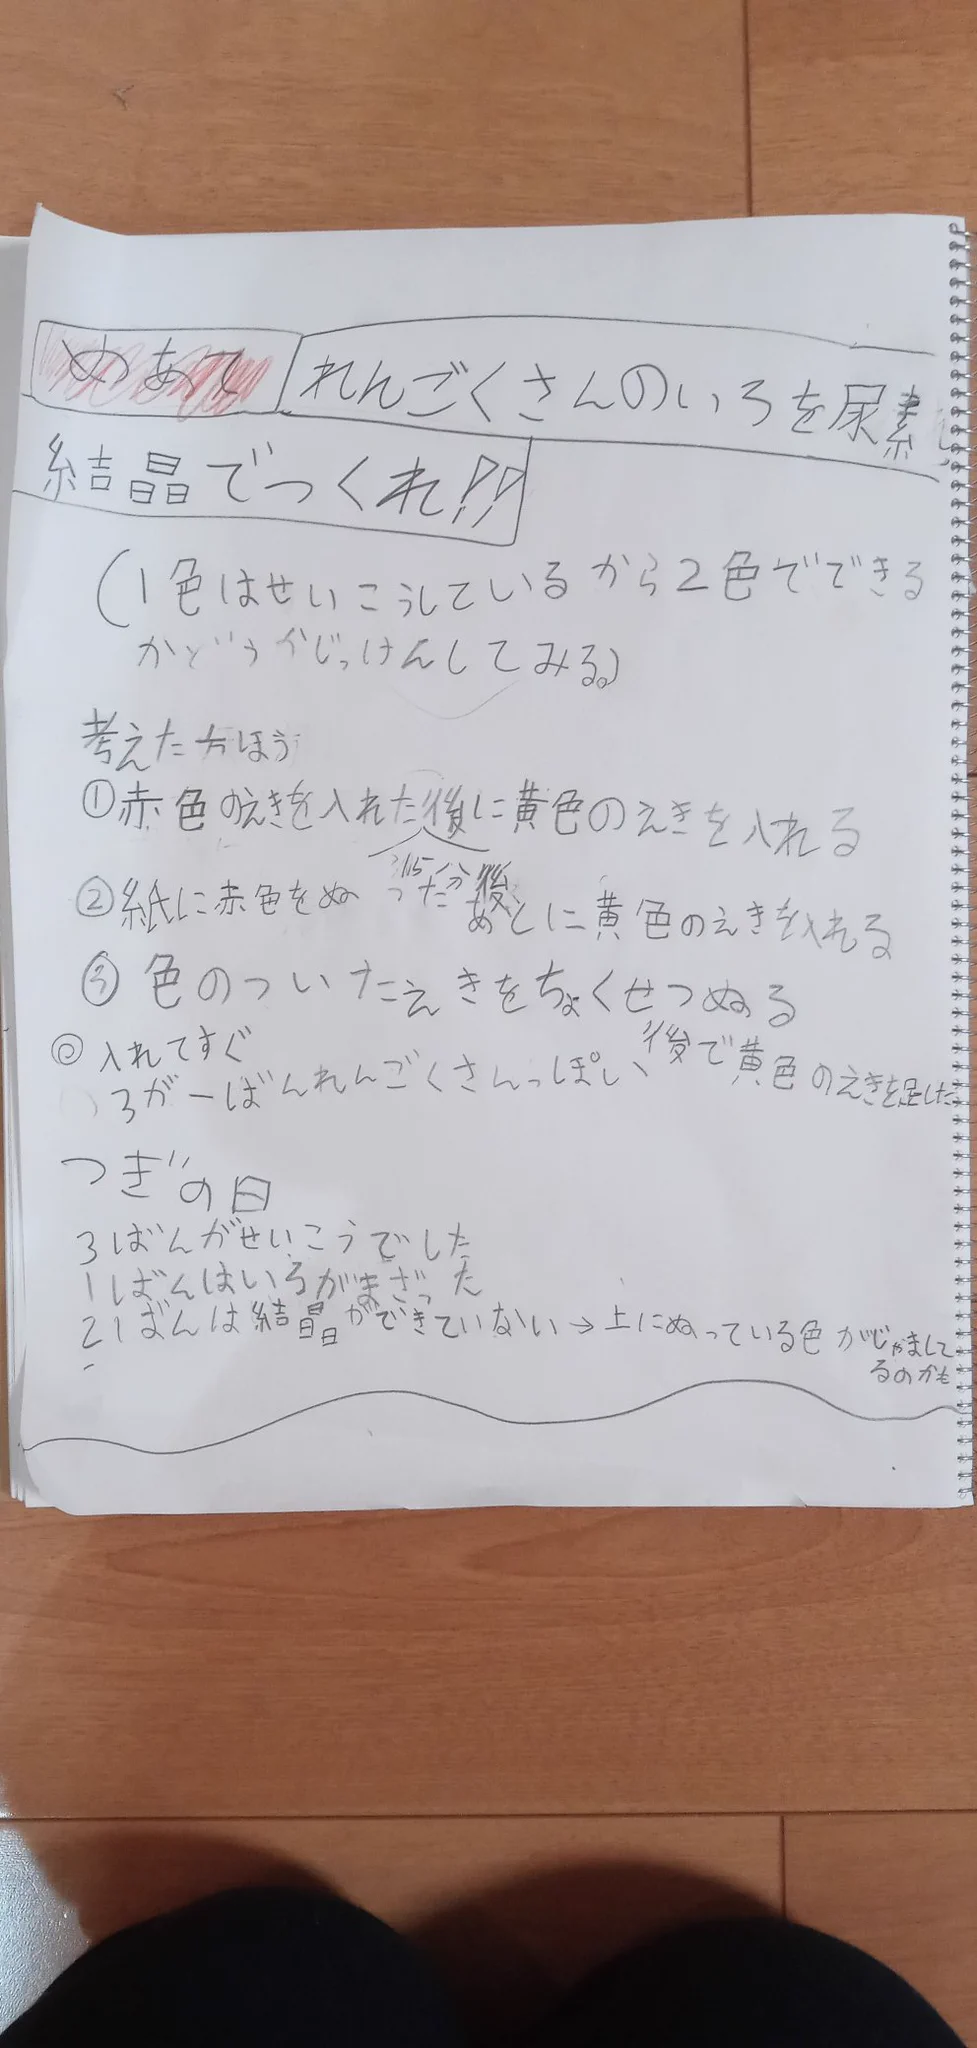 めあて れんごくさんのいろを尿素
結晶でつくれ!!
(1色はせいこうしているから2色でできる
かどうかじっけんしてみる。)
考えた方ほう
①赤色のえきを入れた後に黄色のえきを入れる
15分後
②紙に赤色をぬったあとに黄色のえきを入れる
③色のついたえきをちょくせつぬる
◎入れてすぐ
いろが一ばんれんごくさんっぽい 後で黄色のえきを足した
つぎの日
3ばんがせいこうでした
1ばんはいろがまざった
2ばんは結晶ができていない→上にぬっている色がじゃまして
るのかも